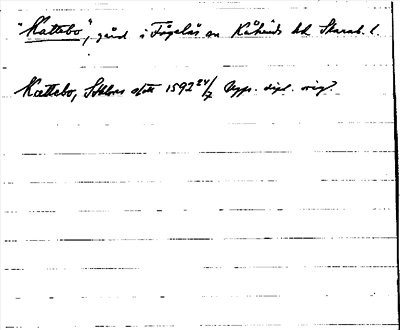 "Kattebo", gård i Fågelås sn Kåkinds hd Skarab. l.
Kattebo, 1592 24/7 Upps. dipl. orig.